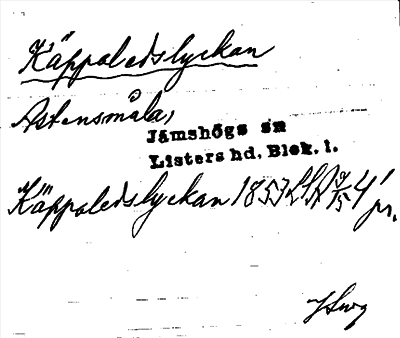 Käppaledslyckan
Astensmåla,
Jämshögs sn
Listers hd, Blek. l.
Käppaledslyckan 1853 LSA 9/15 4' pr.